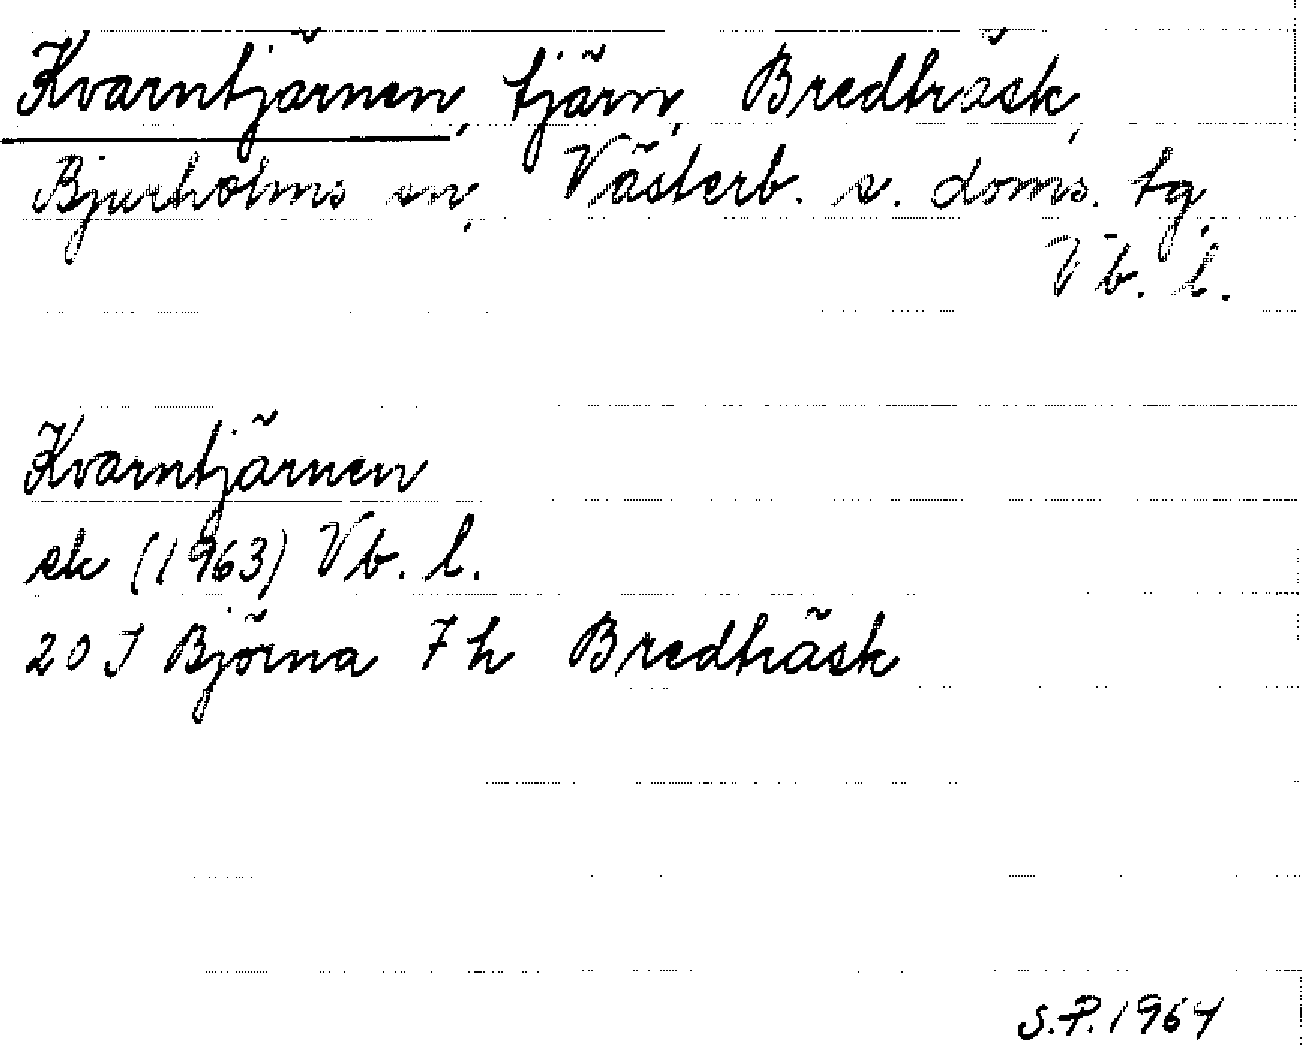 Kvarntjärnen, tjärn, Bredträsk,
Bjurholms sn, Västerb. s. doms. tg,
Vb. l.
Kvarntjärnen
ek (1963) Vb. l.
20 J Björna 7 h Bredträsk
S.P. 1964